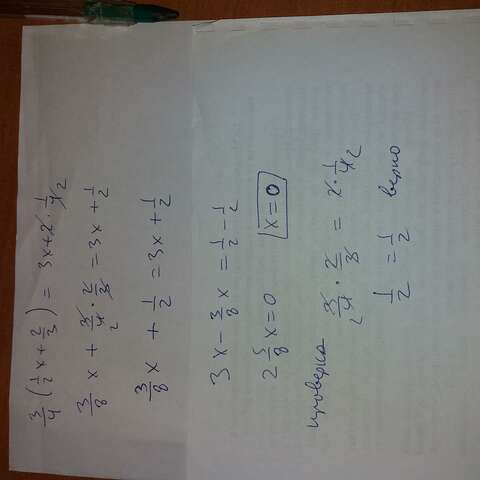 3/4 (1/2 x + 2/3) = 3x + 2 · 1/4 2
3/8 x + 3/4 2 · 2/3 = 3x + 1/2
3/8 x + 1/2 = 3x + 1/2
3x - 3/8 x = 1/2 - 1/2
2 5/8 x = 0 x = 0
проверка 3/4 2 · 2/3 = 2 · 1/4 2
1/2 = 1/2 верно